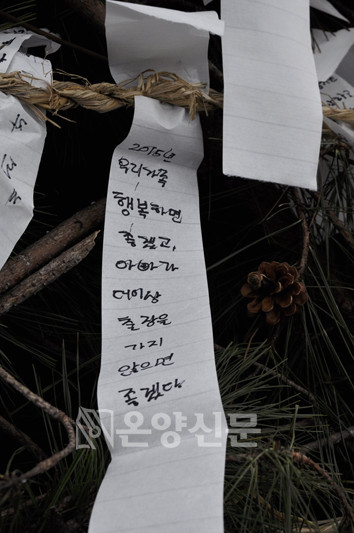 2015년
우리가족
행복하면
좋겠고,
아빠가
더이상
출장을
가지
않으면
좋겠다
온양신문